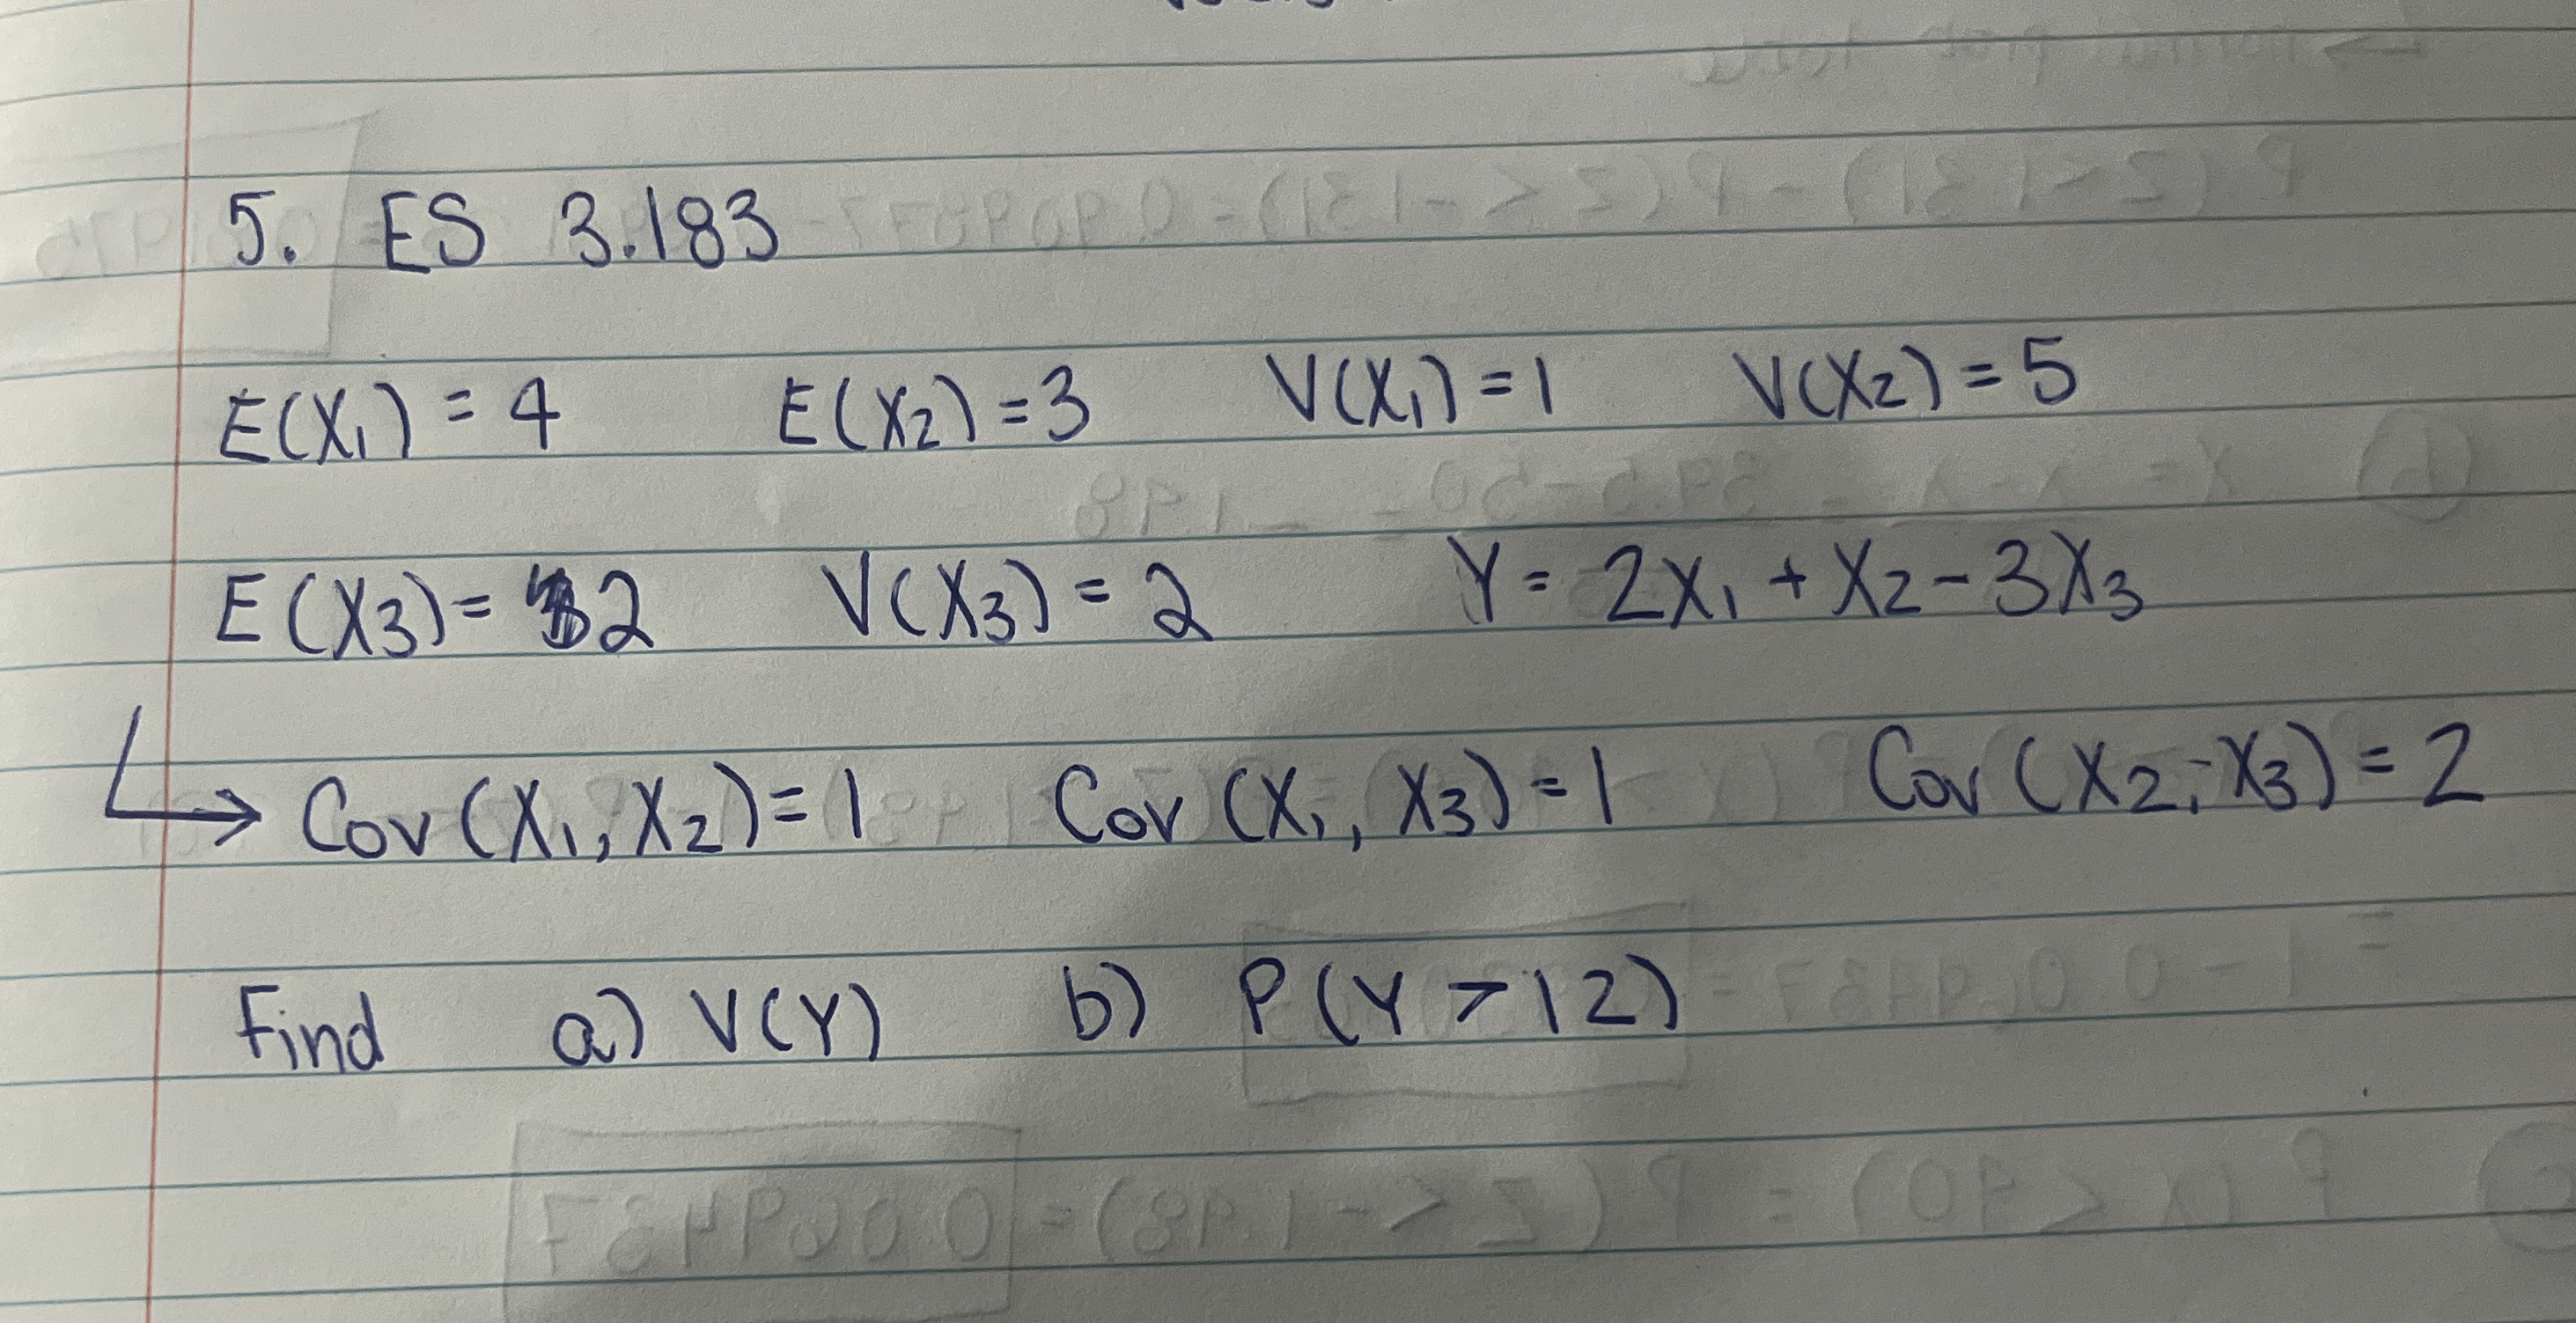 5. ES 3.183
E(X₁) = 4 E(X₂) = 3 V(X₁) = 1 V(X₂) = 5
E(X₃) = 2 V(X₃) = 2 Y = 2X₁ + X₂ - 3X₃
↳ Cov(X₁, X₂) = 1 Cov(X₁, X₃) = 1 Cov(X₂, X₃) = 2
Find a) V(Y) b) P(Y > 12)